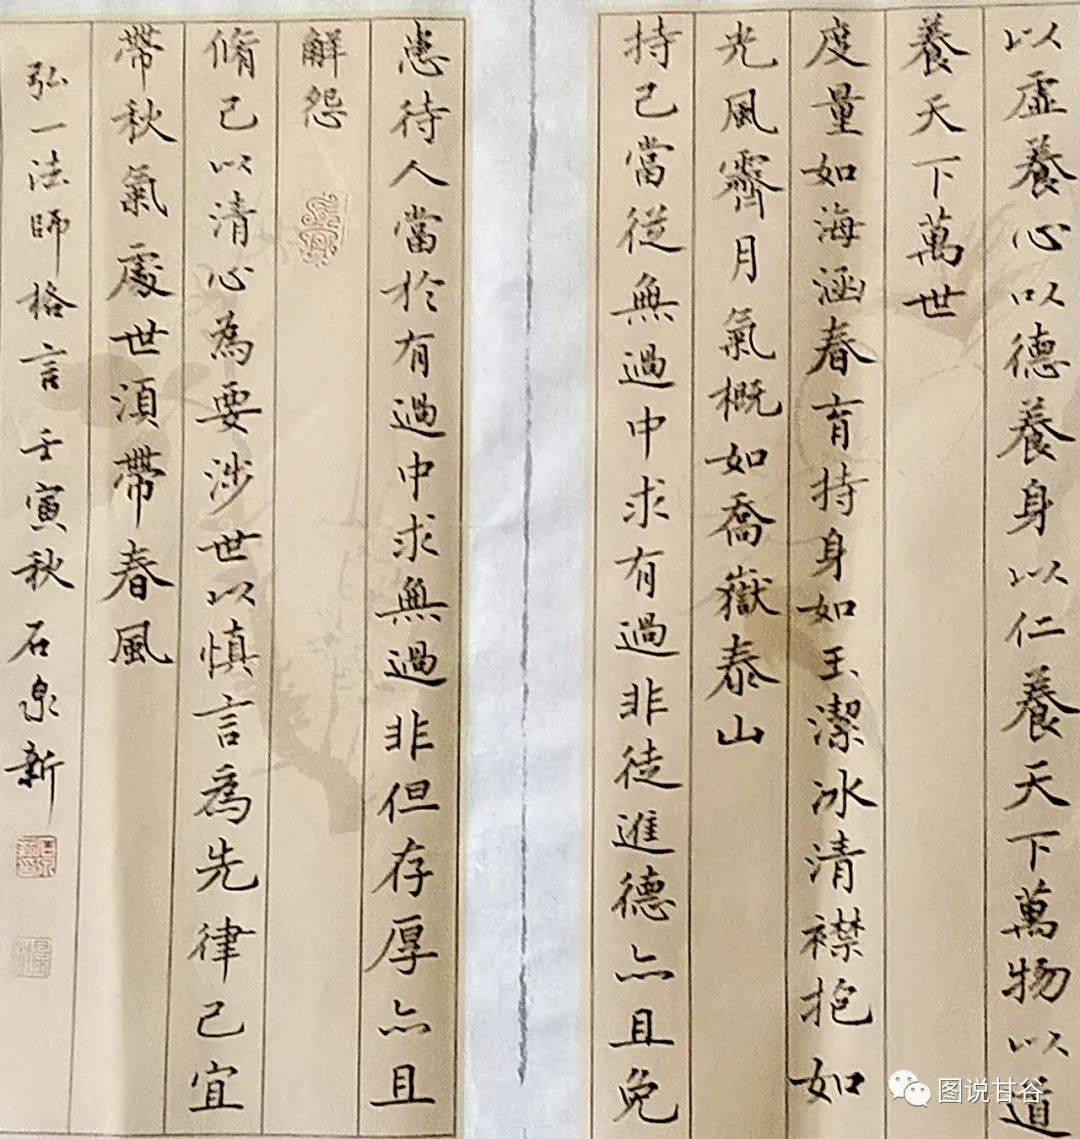 以虛養心以德養身以仁養天下萬物以道
養天下萬世
度量如海涵春育持身如玉潔冰清襟抱如
光風霽月氣概如喬嶽泰山
持己當從無過中求有過非徒進德亦且免
患待人當於有過中求無過非但存厚亦且
解怨
脩己以清心為要涉世以慎言為先律己宜
帶秋氣處世須帶春風
弘一法師格言壬寅秋石泉新
图说甘谷